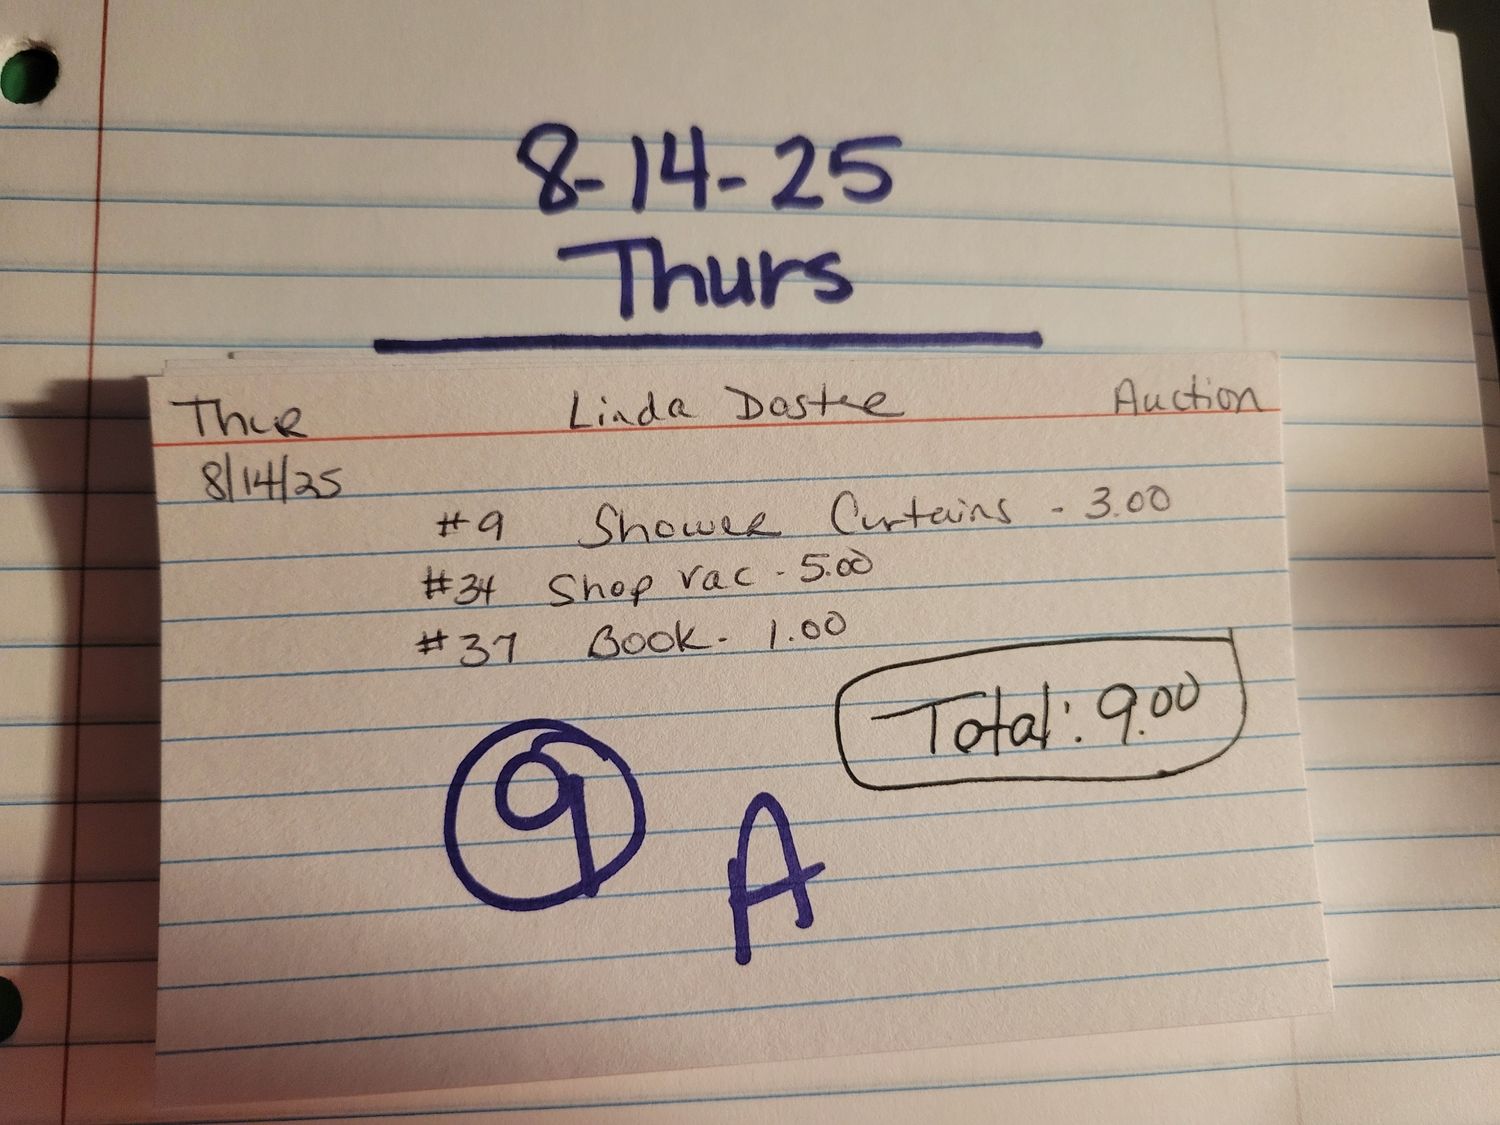 8-14-25
Thurs
Thur Linda Dostee Auction
8/14/25
#9 Shower Curtains - 3.00
#34 Shop vac - 5.00
#37 Book - 1.00
Total: 9.00
9 A